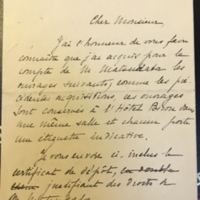 Cher Monsieur
J'ai l'honneur de vous faire
connaître que j'ai acquis pour le
compte de M. Matsukata les
ouvrages suivants; comme les pré-
cédentes acquisitions, ces ouvrages
sont conservés à l'Hôtel Biron dans
une même salle et chacun porte
une étiquette indicative.
Je vous envoie ci-inclus le
certificat de dépôt, en double
justifiant des droits de
M. Matsukata